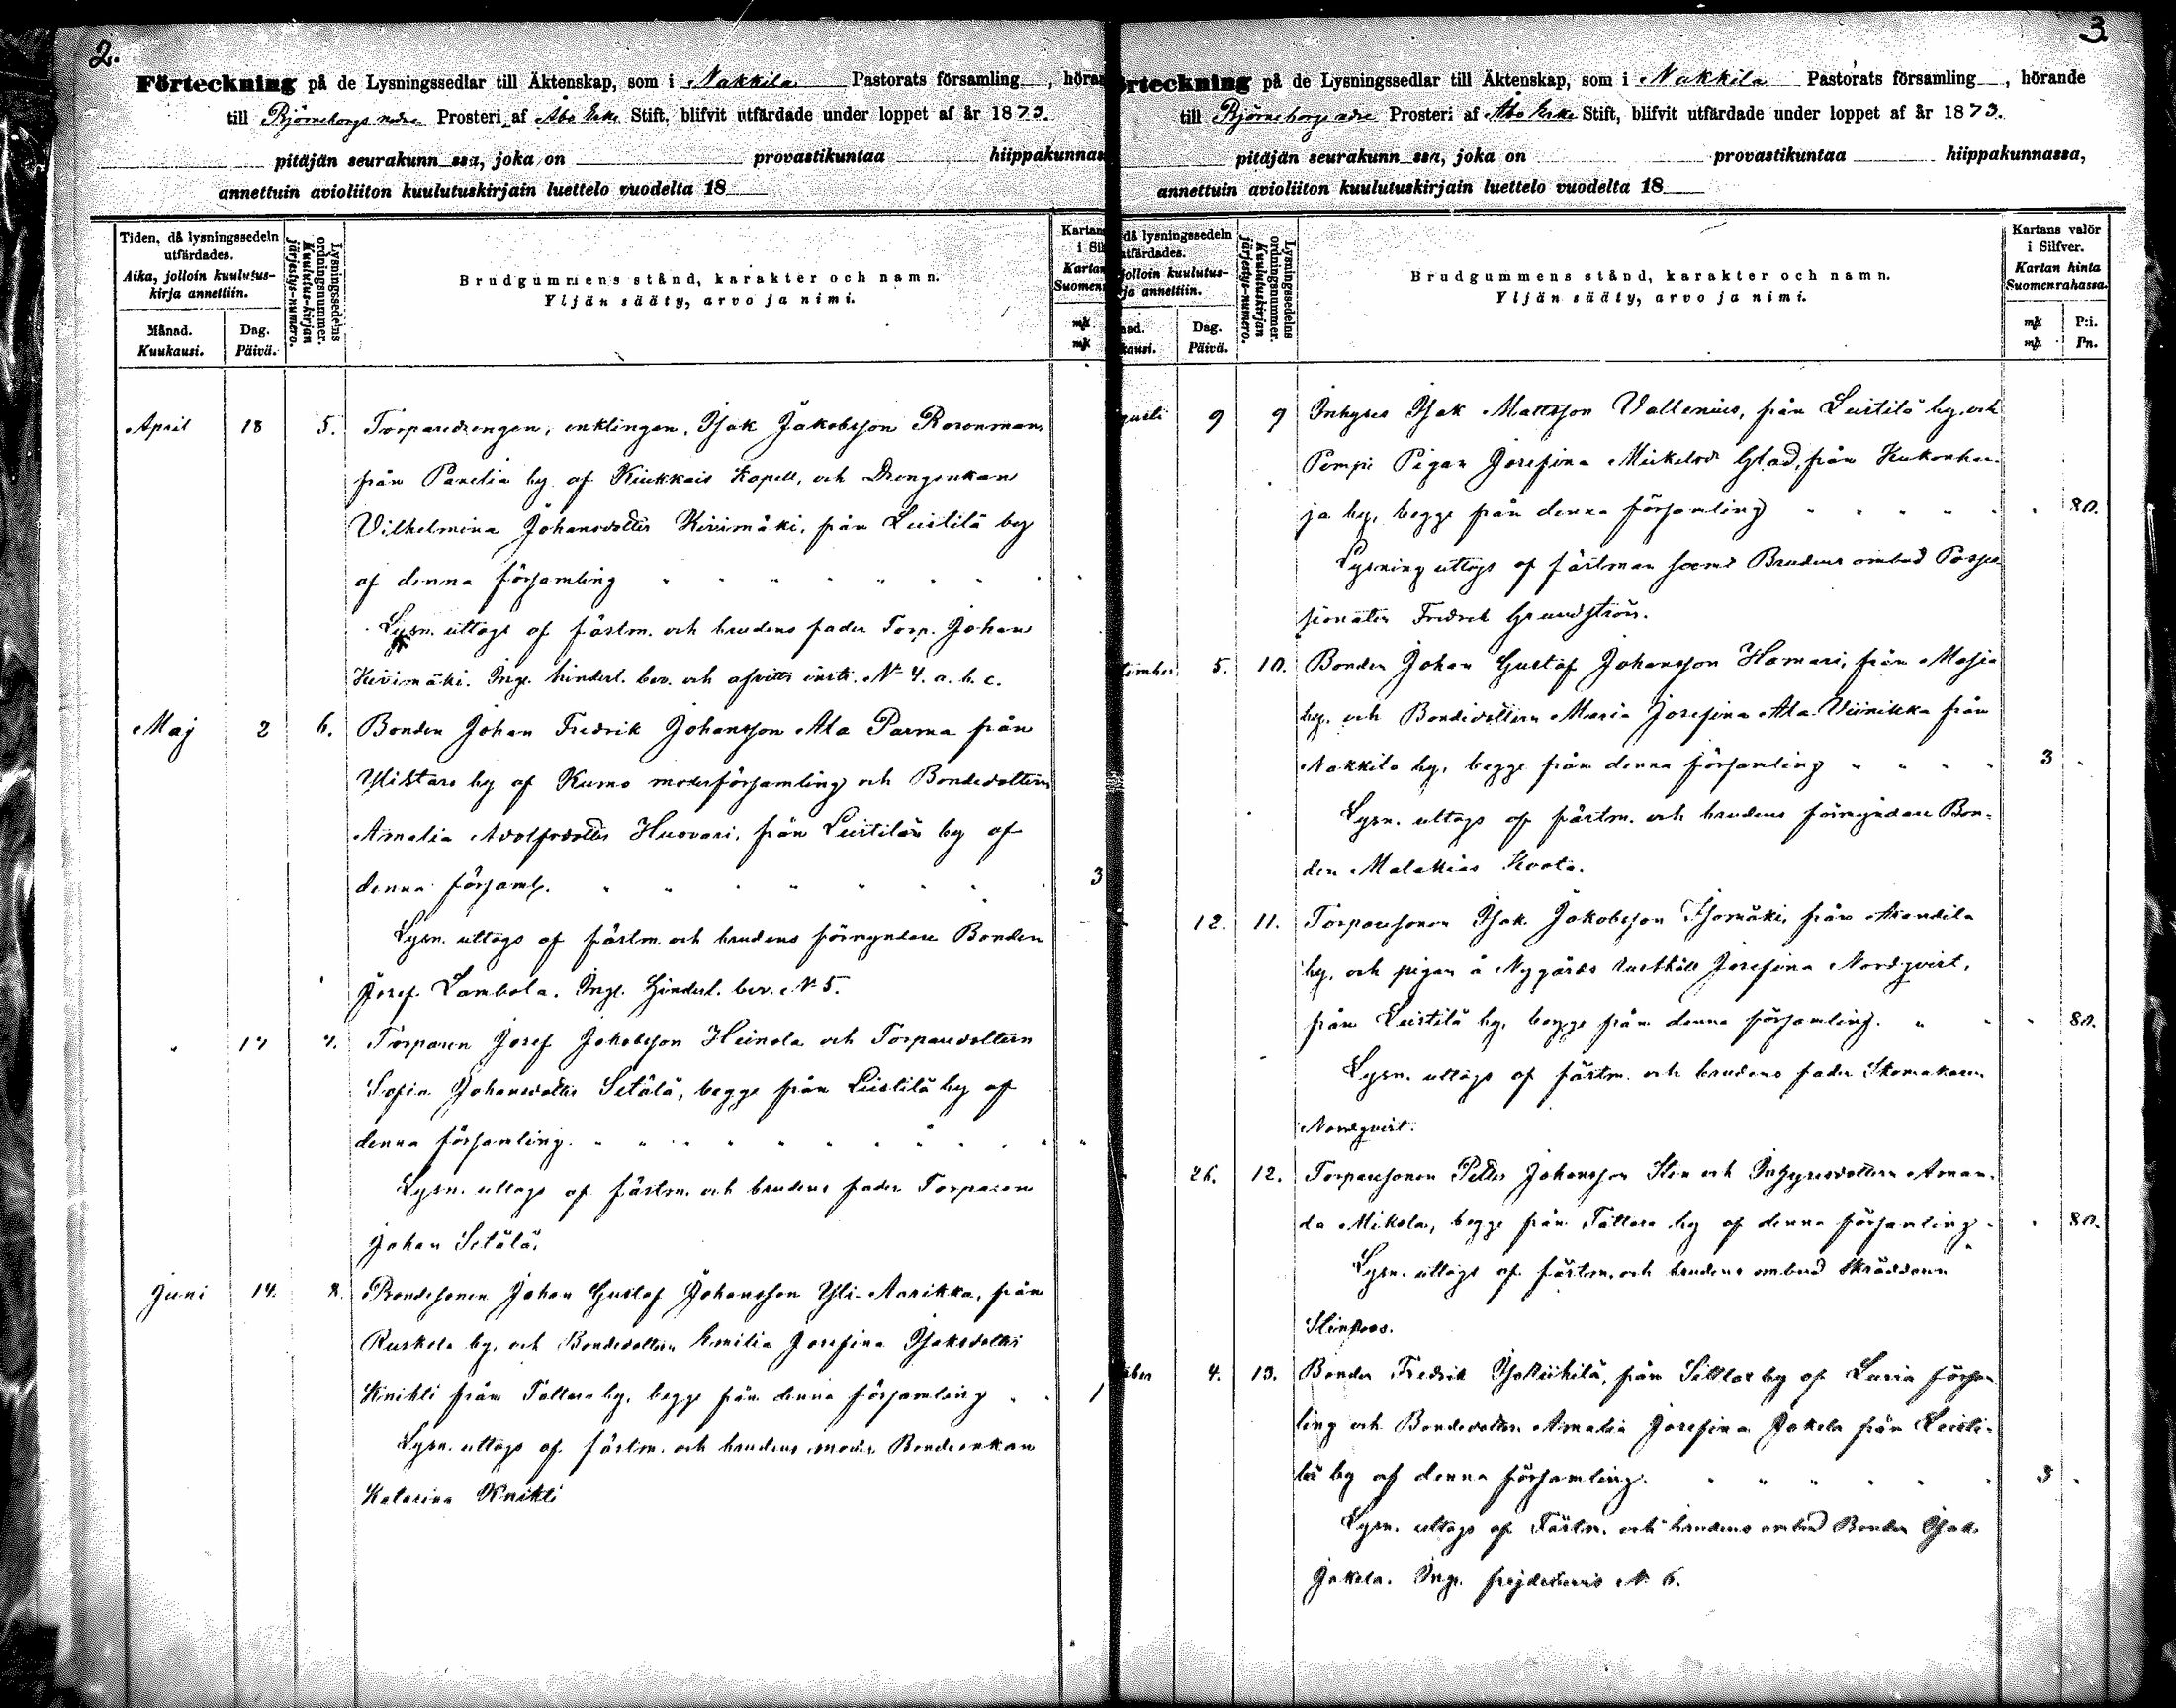 2.
Förteckning på de Lysningssedlar till Äktenskap, som i Nakkila Pastorats församling, höran
till Björneborgs nedre Prosteri af Åbo Erke Stift, blifvit utfärdade under loppet af år 1873.
pitäjän seurakunn ssa, joka on provastikuntaa hiippakunnas
annettuin avioliiton kuulutuskirjain luettelo vuodelta 18
Tiden, då lysningssedeln utfärdades.
Aika, jolloin kuulutus-kirja annettiin.
Månad. Dag.
Kuukausi. Päivä.
Lysningssedelns ordningsnummer.
Kuulutus-kirjan järjestys-numero.
Brudgummens stånd, karakter och namn.
Yljän sääty, arvo ja nimi.
Kartans
i Sil
Kartan
Suomen
mk
mk
April 18 5. Torparedrengen, enklingen, Isak Jakobsson Rosonman
från Panelia by af Kiukkais Kapell, och Drengenkan
Vilhelmina Johansdotter Kivimäki, från Leistilä by
af denna församling " " " " " " "
Lysn. uttogs af fästm. och brudens fader Torp. Johan
Kivimäki. Inge. hinderl. bev. och afvittr. instr. N° 4. a. b. c.
Maj 2 6. Bonden Johan Fredrik Johansson Ala Parma från
Ylistaro by af Kumo moderförsamling och Bondedottern
Amalia Adolfsdotter Huovari, från Leistilä by af
denna församl. " " " " " " " 3
Lysn. uttogs af fästm. och brudens förmyndare Bonden
Josef Lambola. Inge. Hinderl. bev. N° 5.
" 17 7. Torparen Josef Jakobsson Heinola och Torparedottern
Sofia Johansdotter Setälä, begge från Leistilä by af
denna församling. " " " " " " " " "
Lysn. uttogs af fästm. och brudens fader Torparen
Johan Setälä.
Juni 14. 8. Bondesonen Johan Gustaf Johansson Yli-Marikka, från
Ruskela by, och Bondedottern Emilia Josefina Isaksdotter
Knihti från Tattara by, begge från denna församling " " 1
Lysn. uttogs af fästm. och brudens moder Bondeenkan
Katarina Knihti
3
rteckning på de Lysningssedlar till Äktenskap, som i Nakkila Pastorats församling, hörande
till Björneborgs nedre Prosteri af Åbo Erke Stift, blifvit utfärdade under loppet af år 1873.
pitäjän seurakunn ssa, joka on provastikuntaa hiippakunnassa,
annettuin avioliiton kuulutuskirjain luettelo vuodelta 18
då lysningssedeln utfärdades.
jolloin kuulutus-
ja annettiin.
ad. Dag.
kausi. Päivä.
Lysningssedelns ordningsnummer.
Kuulutuskirjan järjestys-numero.
Brudgummens stånd, karakter och namn.
Yljän sääty, arvo ja nimi.
Kartans valör i Silfver.
Kartan hinta Suomenrahassa.
mk P:i.
mk Pn.
gusti 9 9 Inhyses Isak Mattsson Vallenius, från Leistilä by, och
Pempi Pigan Josefina Mickelsdr Glad, från Kukonhar-
ja by, begge från denna församling " " " " " " 80.
Lysning uttogs af fästman samt Brudens ombud Posses
sionaten Fredrik Grundström.
tember 5. 10. Bonden Johan Gustaf Johansson Hamari, från Masia
by, och Bondedottern Maria Josefina Ala-Viinikka från
Nakkila by, begge från denna församling " " " " 3 "
Lysn. uttogs af fästm. och brudens förmyndare Bon-
den Malakias Kvota.
12. 11. Torparesonen Isak Jakobsson Isomäki från Arandila
by, och pigan å Nygårds Rusthåll Josefina Nordqvist,
från Leistilä by, begge från denna församling. " " " 80.
Lysn. uttogs af fästm. och brudens fader Skomakaren
Nordqvist.
26. 12. Torparesonen Petter Johansson Sten och Inhysesdottern Aman-
da Mikola, begge från Tattara by af denna församling " " 80.
Lysn. uttogs af fästm. och brudens ombud Skräddaren
Stenroos.
ober 4. 13. Bonden Fredrik IsoKiihilä, från Sitlax by af Lavia försam
ling och Bondedottern Amalia Josefina Jakela från Leisti-
lä by af denna församling. " " " " " " 3 "
Lysn. uttogs af Fästm. och brudens ombud Bonden Isak
Jakela. Inge. frejdebevis N° 6.